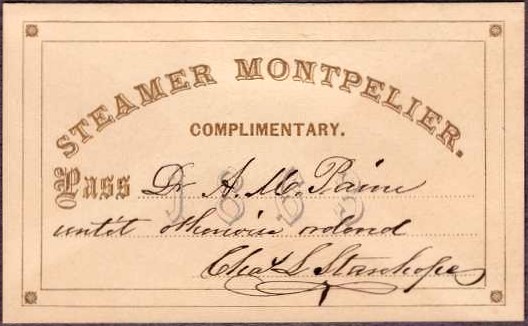 STEAMER MONTPELIER.
COMPLIMENTARY.
Pass Dr A. M. Paine
1868
until otherwise ordered
Chas L Stanhope